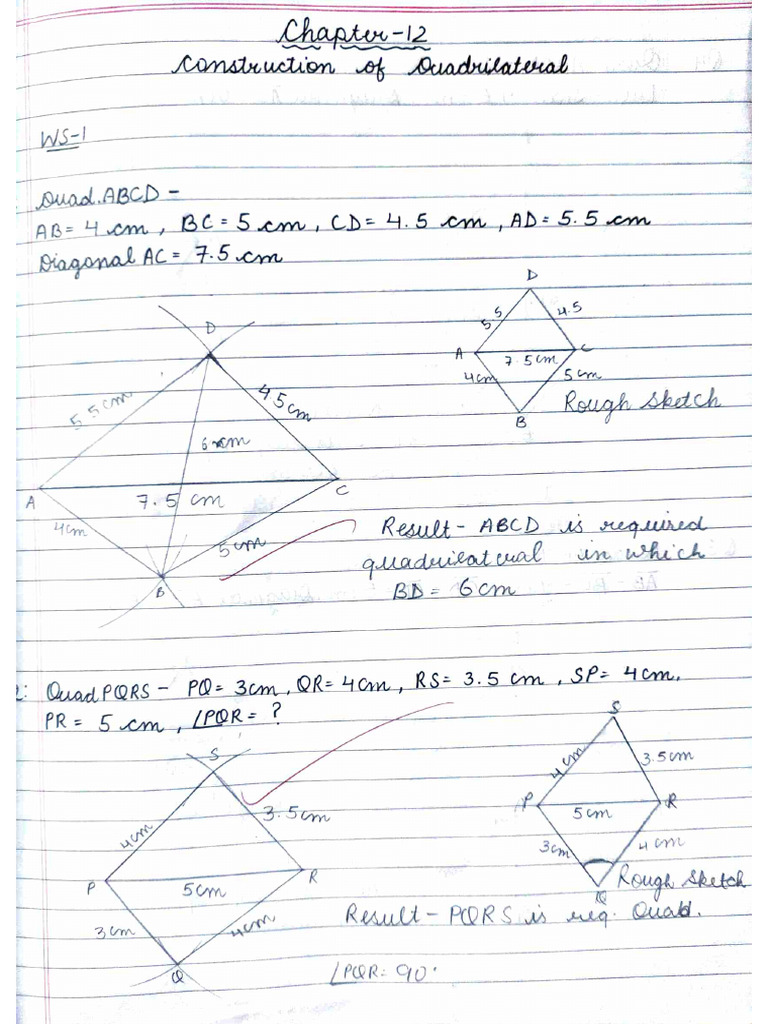 Chapter-12
Construction of Quadrilateral
WS-1
Quad.ABCD -
AB = 4 cm, BC = 5 cm, CD = 4.5 cm, AD = 5.5 cm
Diagonal AC = 7.5 cm
D
5.5
4.5
A
7.5cm
C
4cm
5cm
B
Rough Sketch
D
5.5cm
4.5cm
6cm
A
7.5 cm
C
4cm
5cm
B
Result - ABCD is required
quadrilateral in which
BD = 6 cm
2: Quad PQRS - PQ = 3cm, QR = 4cm, RS = 3.5 cm, SP = 4 cm.
PR = 5 cm, ∠PQR = ?
S
4cm
3.5cm
P
5cm
R
3cm
4cm
Q
S
4cm
3.5cm
P
5cm
R
3cm
4cm
Q
Rough Sketch
Result - PQRS is req. Quad.
∠PQR = 90°